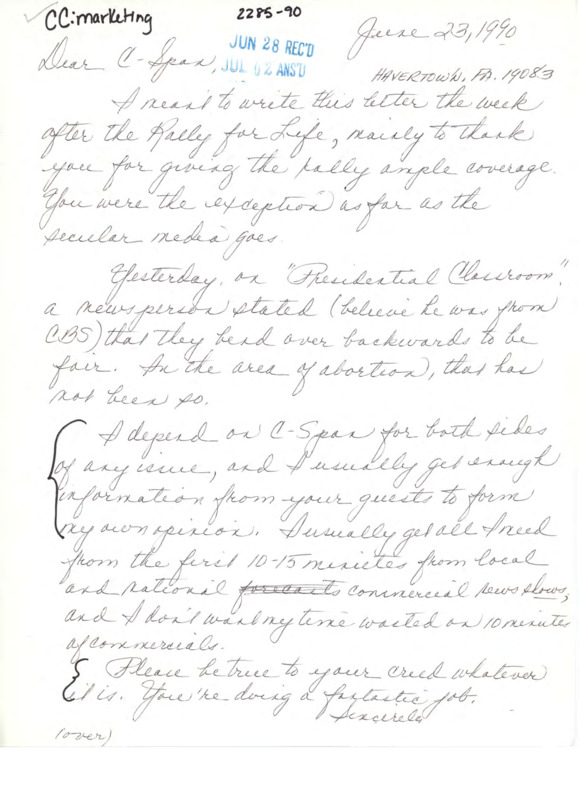 CC: marketing
2285-90
June 23, 1990
JUN 28 REC'D
Dear C-Span,
JUL 02 ANS'D
HAVERTOWN, PA. 19083
I meant to write this letter the week
after the Rally for Life, mainly to thank
you for giving the rally ample coverage.
You were the exception as far as the
secular media goes.
Yesterday, on "Presidential Classroom",
a newsperson stated (believe he was from
CBS) that they bend over backwards to be
fair. In the area of abortion, that has
not been so.
I depend on C-Span for both sides
of any issue, and I usually get enough
information from your guests to form
my own opinion. I usually get all I need
from the first 10-15 minutes from local
and national forecasts commercial news shows,
and I don't want my time wasted on 10 minutes
of commercials.
Please be true to your creed whatever
it is. You're doing a fantastic job.
Sincerely
(over)